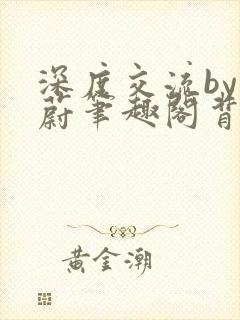 深度交流by
蔚笔趣阁背
黄金潮